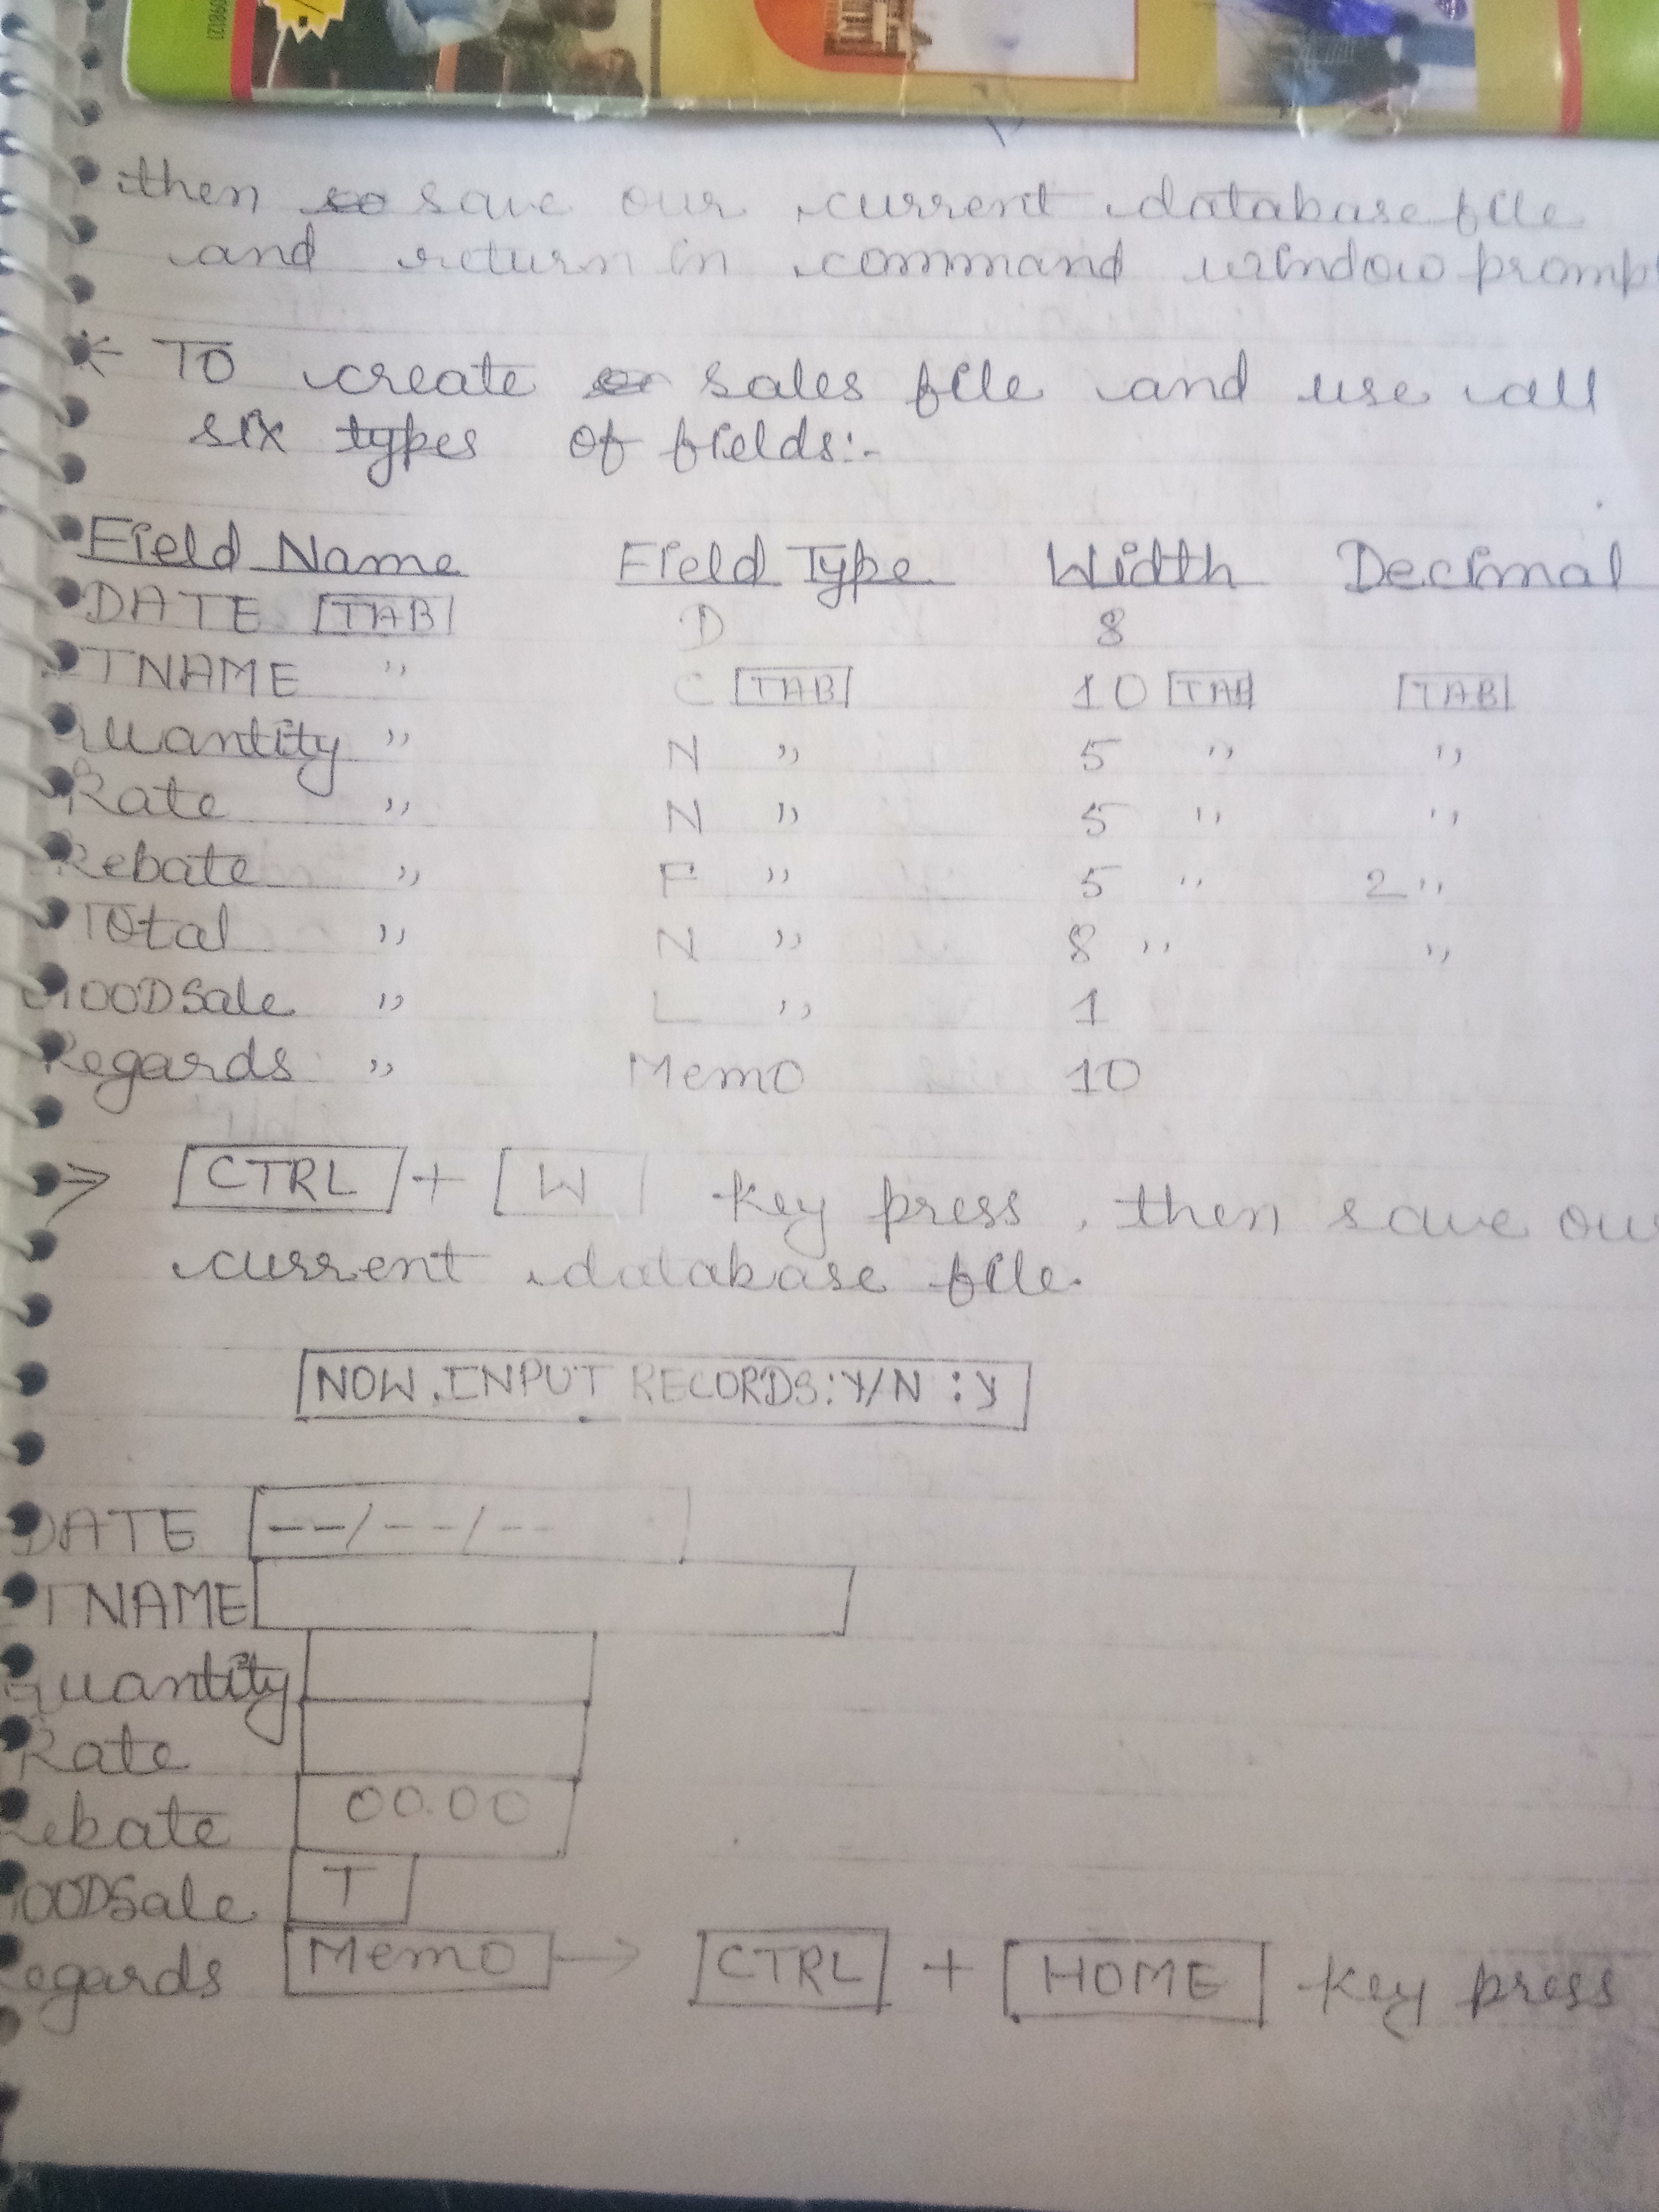 09B121
then save our current database file
and return in command window prompt
* To create sales file and use all
six types of fields:-
Field Name Field Type Width Decimal
DATE [TAB] D 8
TNAME " C [TAB] 10 [TAB] [TAB]
Quantity " N " 5 " "
Rate " N " 5 " "
Rebate " F " 5 " 2 "
Total " N " 8 " "
GOODSale " L " 1
Regards " Memo 10
→ [CTRL] + [W] key press, then save our
current database file.
NOW. INPUT RECORDS:Y/N :Y
DATE --/--/--
TNAME
Quantity
Rate
Rebate 00.00
GOODSale T
Regards Memo → [CTRL] + [HOME] key press